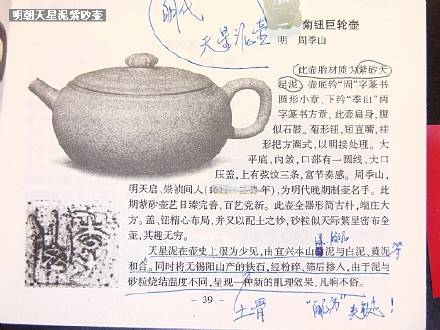 明朝天星泥紫砂壶
明代
天星泥壶
菊钮巨轮壶
明 周季山
此壶胎材质为紫砂天
星泥。壶底钤“周”字篆书
圆形小章，下钤“季山”两
字篆书方章，此壶扁身，腹
似石鼓。菊形钮，短直嘴，柱
形把方圈式，以明接处理。大
平底，内敛，口部有一圆线，大口
压盖，上有弦纹三条，富节奏感。周季山，
明天启、崇祯间人
为明代晚期制壶名手。此
期紫砂壶艺日臻完善，百艺竞新。此壶全器形简古朴，端庄大
方。盖、钮精心布局，并又以配土之妙，砂粒似天际繁星密布全
壶，其趣无穷。
天星泥在壶史上很为少见，由宜兴本山
泥与白泥、黄泥
等
和合。同时将无锡阳山产的铁石，经粉碎、筛后掺入，由于泥与
砂粒烧结温度不同，呈现一种新的肌理效果，凡响不俗。
— 39 —
土骨